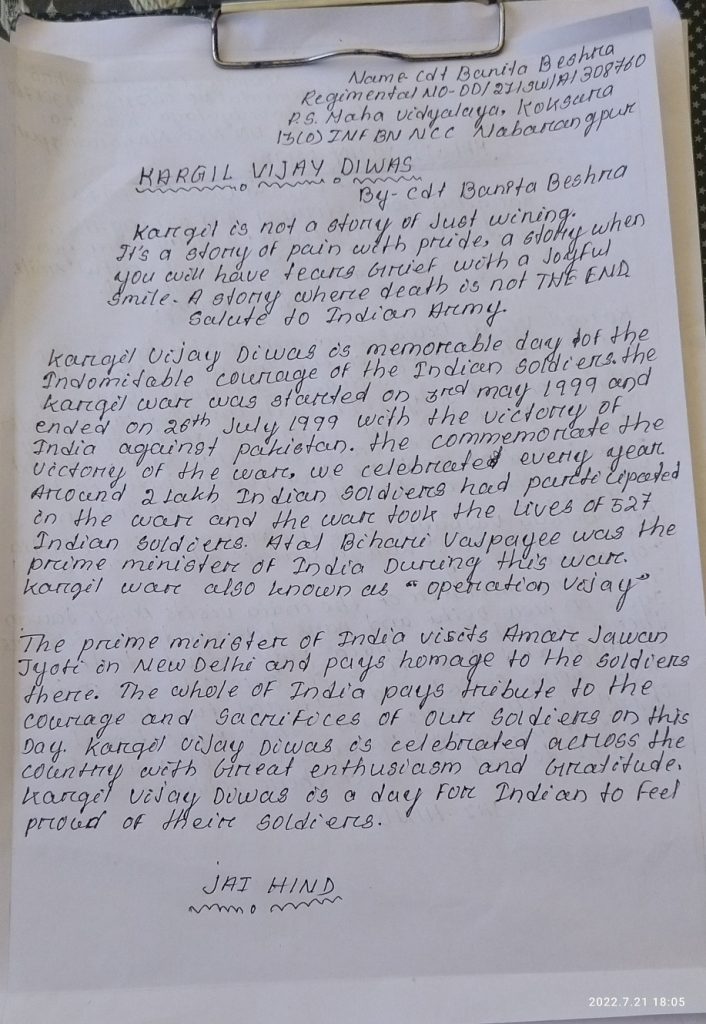 Name- Cdt Banita Beshra
Regimental NO- OD/21/SW/A/308760
P.S. Maha Vidyalaya, Koksara
13(O) INF BN NCC Nabarangpur
KARGIL VIJAY DIWAS
By- Cdt Banita Beshra
Kargil is not a story of Just wining.
It's a story of pain with pride, a story when
you will have tears Grief with a Joyful
Smile. A story where death is not THE END
Salute to Indian Army.
Kargil Vijay Diwas is memorable day fof the
Indomitable courage of the Indian Soldiers. the
Kargil war was started on 3rd may 1999 and
ended on 26th July 1999 with the victory of
India against pakistan. the commemorate the
Victory of the war, we celebrated every year
Around 2 lakh Indian Soldiers had participated
in the war and the war took the lives of 527
Indian Soldiers. Atal Bihari Vajpayee was the
prime minister of India During this war.
Kargil war also known as "operation Vijay"
The prime minister of India visits Amar Jawan
Jyoti in New Delhi and pays homage to the Soldiers
there. The whole of India pays tribute to the
courage and Sacrifices of our Soldiers on this
Day. Kargil Vijay Diwas is celebrated across the
country with Great enthusiasm and Gratitude.
Kargil Vijay Diwas is a day For Indian to Feel
proud of their Soldiers.
JAI HIND
2022.7.21 18:05